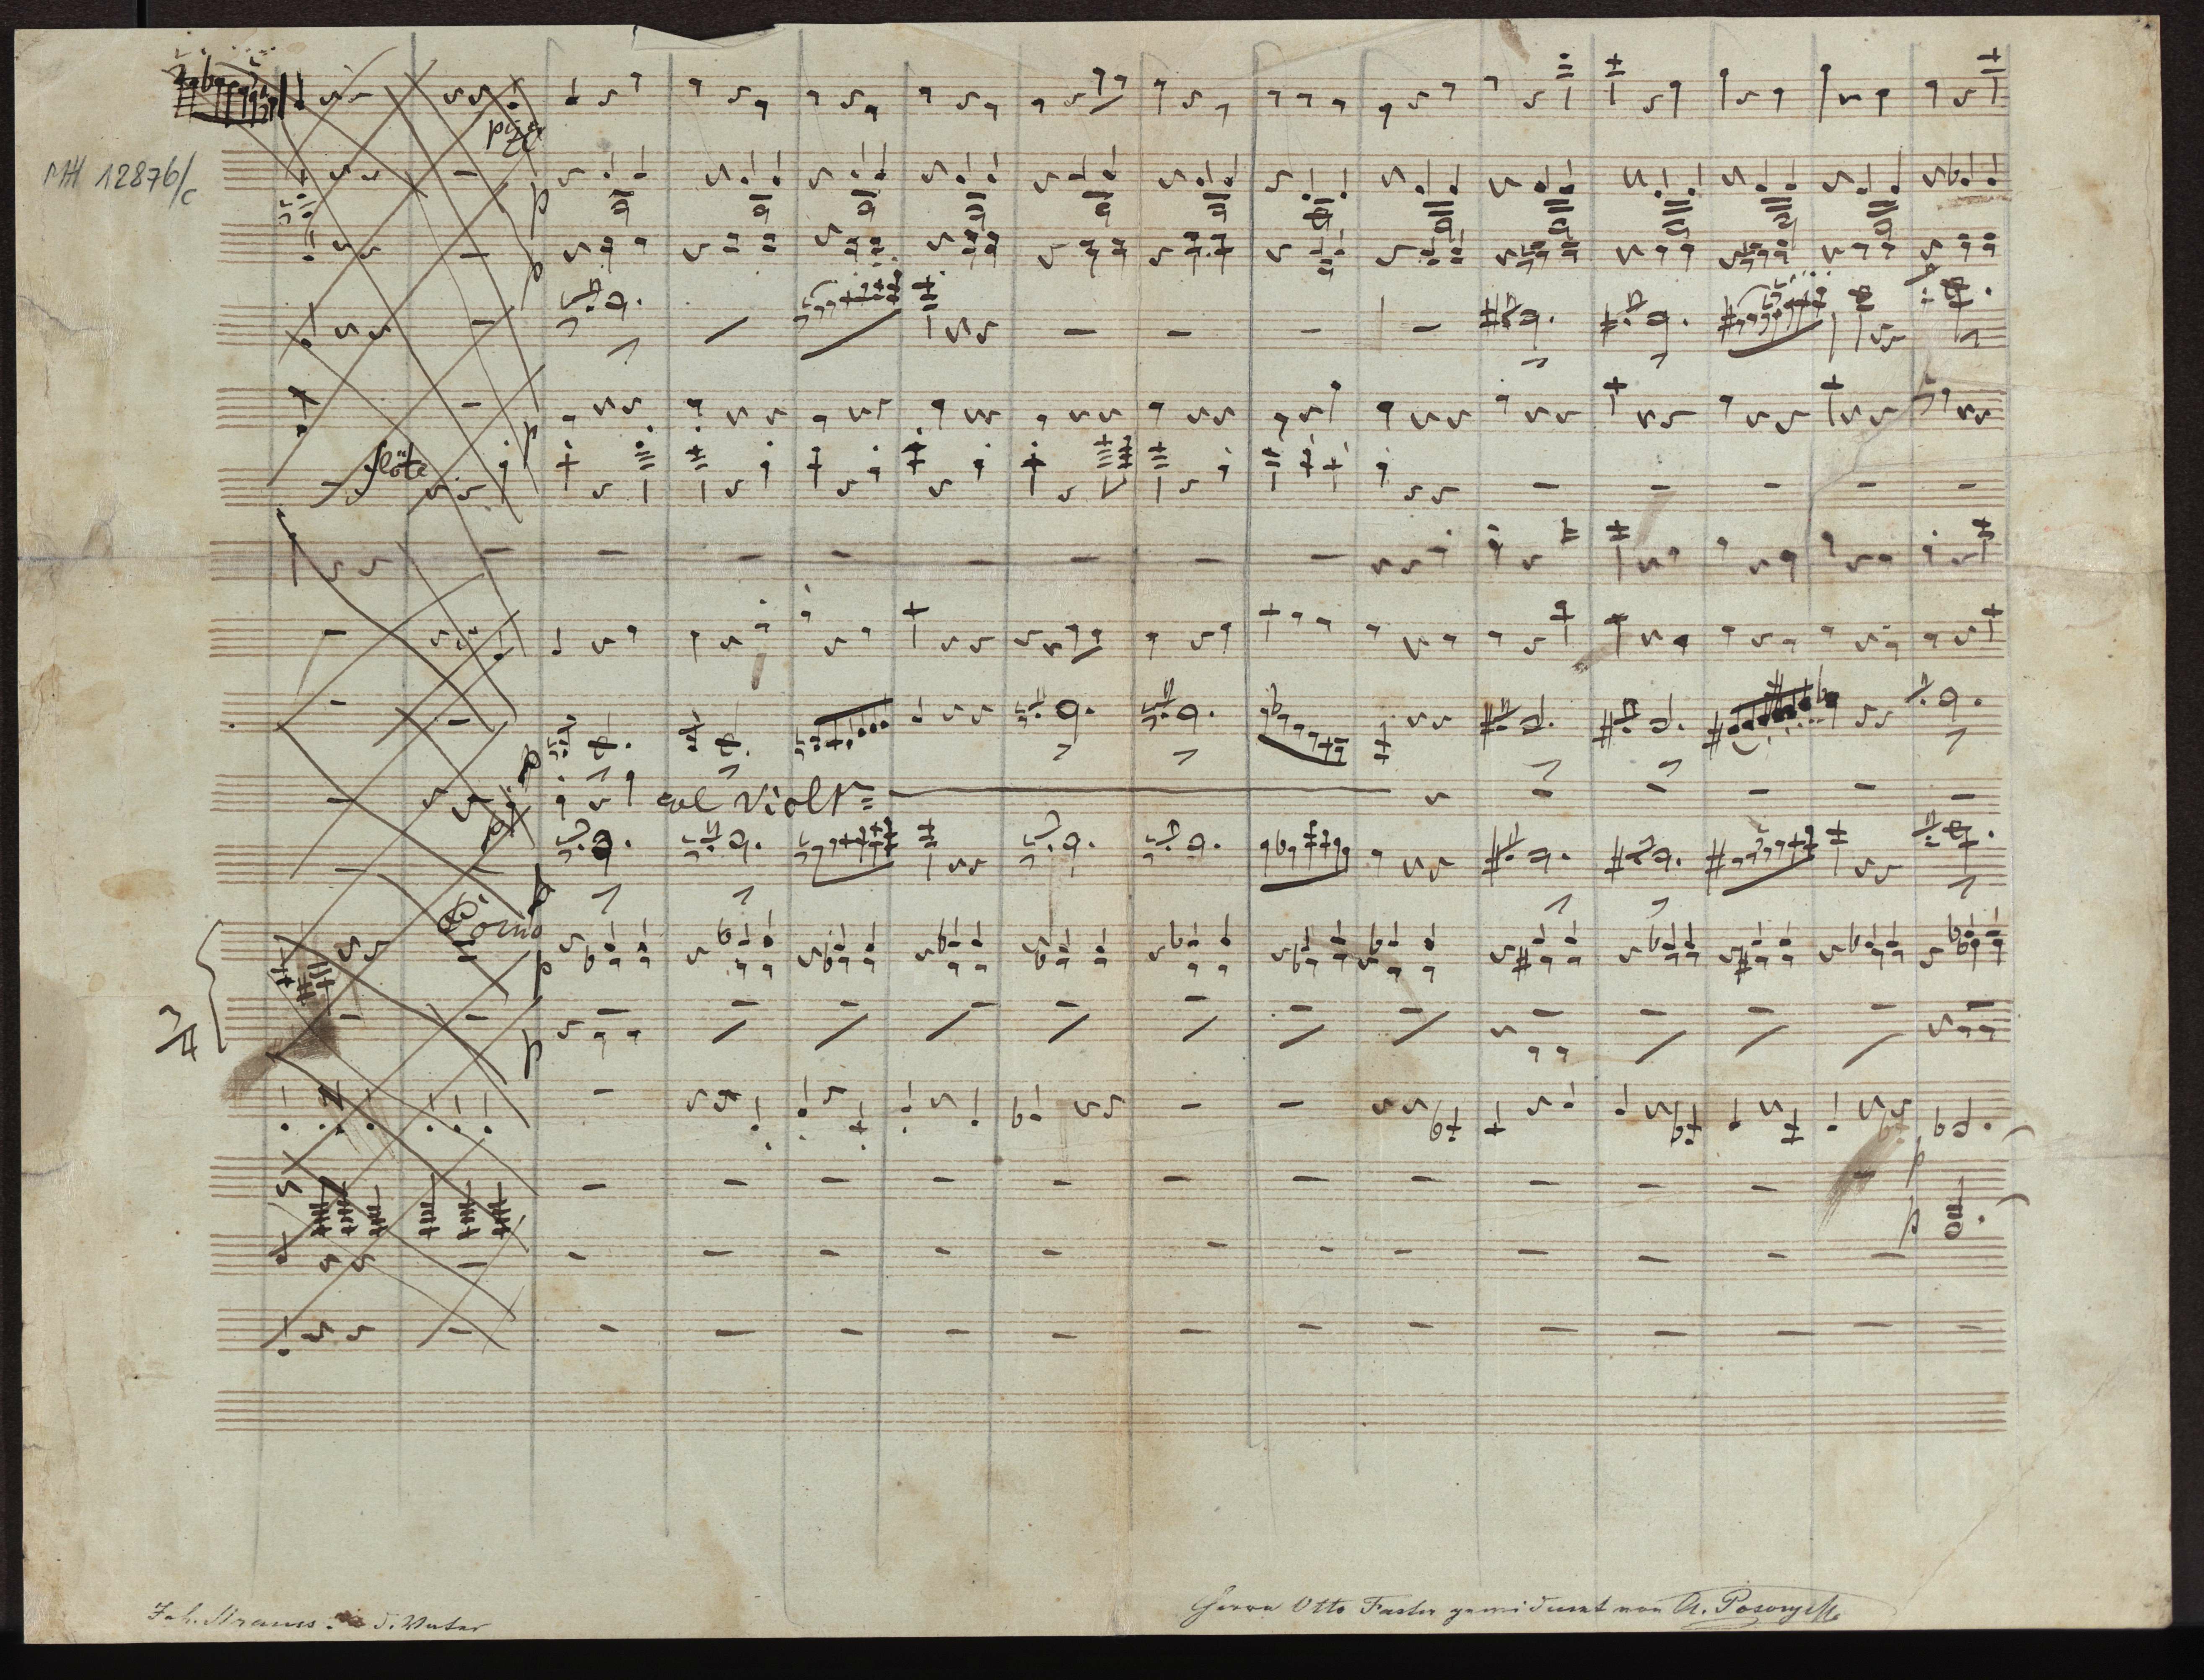 pizz
MH 12876/c
p
p
p
flöte
p
p
col Viol 1mo
p
Corno
p
3/4
p
p
p
Joh. Strauss. d. Vater
Herrn Otto Faster gewidmet von A. Posonyi